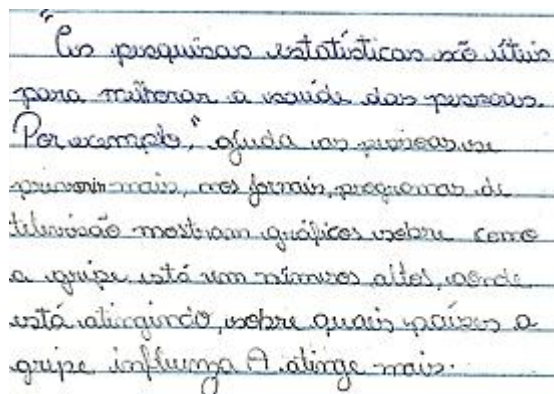 "As pesquisas estatísticas são úteis
para milhorar a saúde das pessoas.
Por exemplo," ajuda as pessoas se
previnir mais, nos jornais, programas de
televisão mostram gráficos sobre como
a gripe está em números altos, aonde
está atingindo, sobre quais países a
gripe influenza A atinge mais.